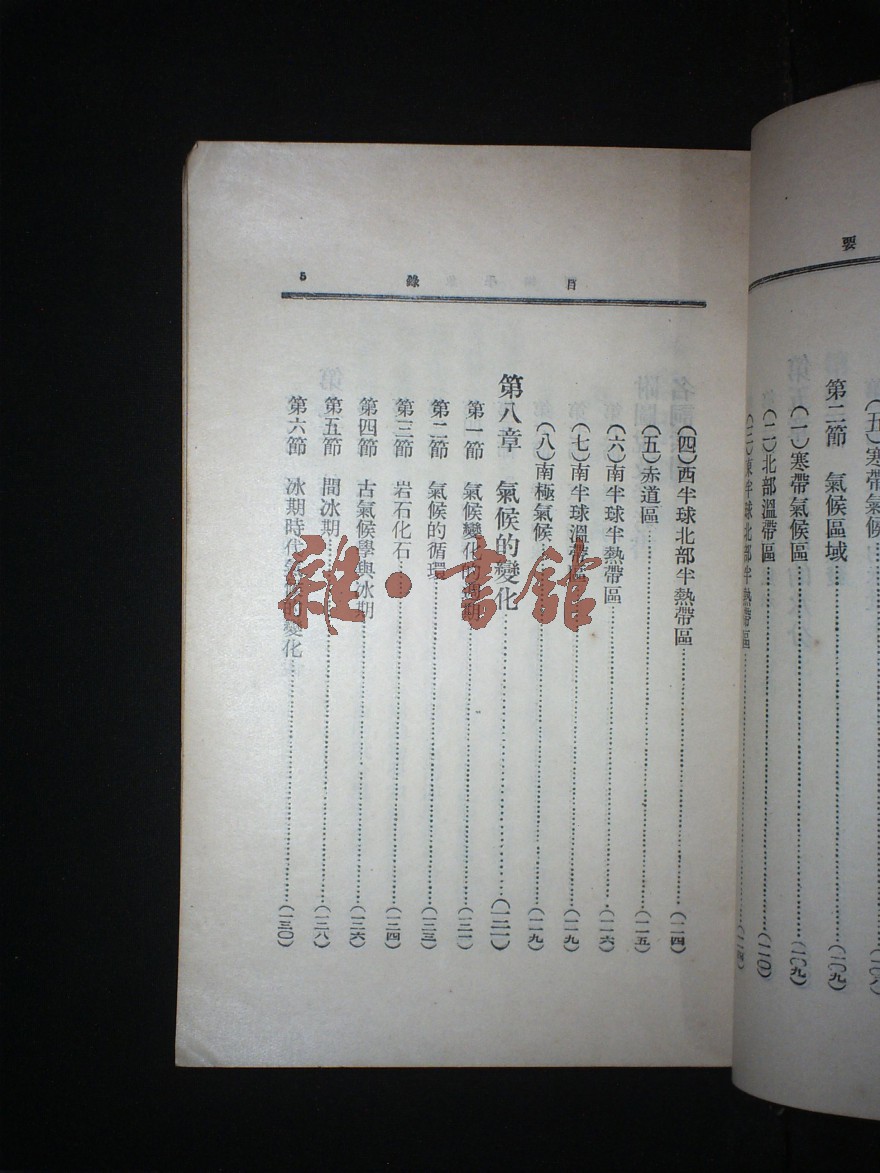 要
(五)寒帶氣候
第二節 氣候區域……(一〇九)
(一)寒帶氣候區……(一〇九)
(二)北部溫帶區……(一一〇)
(三)東半球北部半熱帶區……
目錄 5
(四)西半球北部半熱帶區……(一一四)
(五)赤道區……(一一五)
(六)南半球半熱帶區……(一一六)
(七)南半球溫帶區……(一一九)
(八)南極氣候……(一一九)
第八章 氣候的變化……(一二一)
第一節 氣候變化的週期……(一二一)
第二節 氣候的循環……(一二三)
第三節 岩石化石……(一二四)
第四節 古氣候學與冰期……(一二六)
第五節 間冰期……(一二八)
第六節 冰期時代氣候的變化……(一三〇)
雜·書館